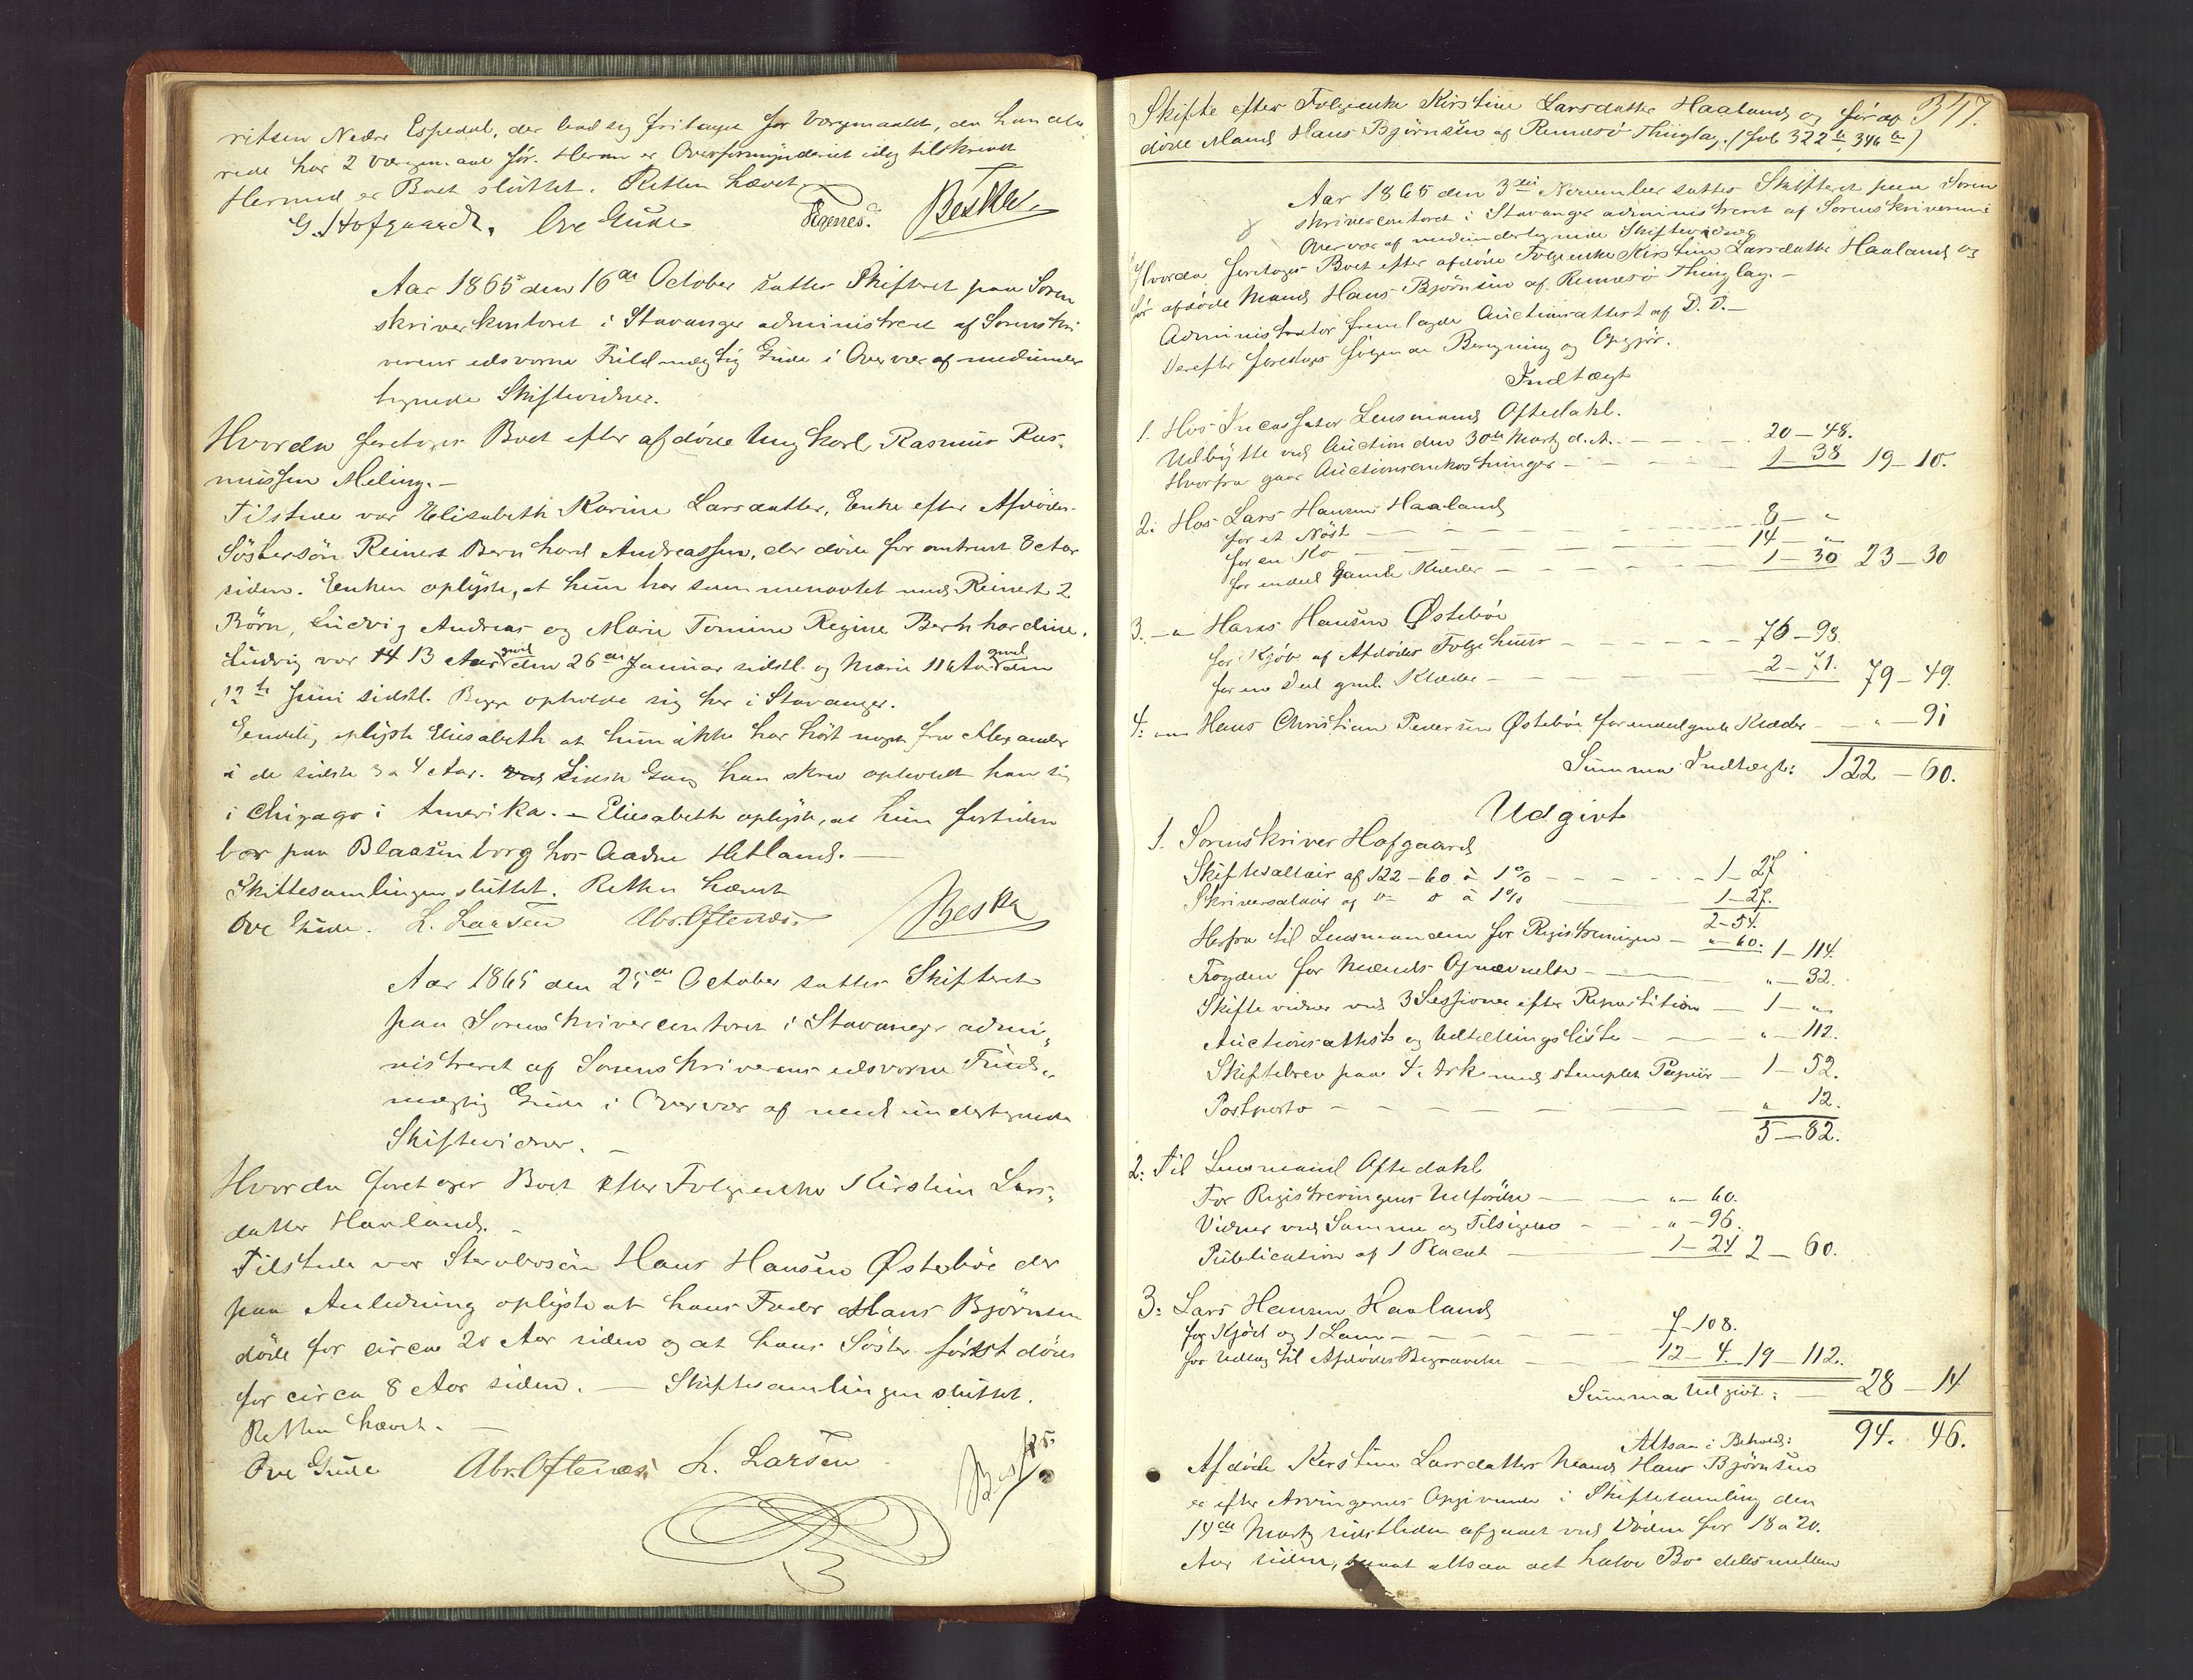 ritsen Nedre Espedal, der bad sig fritaget for Værgemaalet, da han alle
rede har 2 Værgemaal før. Herom er Overformynderiet idag tilskrevet
Hermed er Boet sluttet. Retten hævet.
G. Hofgaard. Ove Gude Beskr.
Aar 1865 den 16de October sattes Skifteret paa Soren
skriverkontoret i Stavanger administreret af Sorenskri
verens edsvorne Fuldmægtig Gude i Overvær af medunder
tegnede Skiftevidner.
Hvorda foretoges Boet efter afdøde Ungkarl Rasmus Ras-
mussen Meling.-
Tilstede var Elisabeth Karine Larsdatter, Enke efter Afdødes
Søstersøn Reinert Bernhard Andreassen, der døde for omtrent 8 Aar
siden. Enken oplyste, at hun har sammenavlet med Reinert 2
Børn, Ludvig Andreas og Marie Tomine Regine Bernhardine.
Ludvig var 14 13 Aar gml den 26de Januar sidstl. og Marie 11 Aar gml den
12te Juni sidstl. Begge opholde sig her i Stavanger.
Eendelig oplyste Elisabeth at hun ikke har hørt noget fra Alexander
i de sidste 3 a 4 Aar. Sidste Gang han skrev opholdt han sig
i Chigago i Amerika. - Eliesabeth oplyste, at hun fortiden
bor paa Blaasenborg hos Aadne Hetland. —
Skiftesamlingen sluttet. Retten hævet
Ove Gude. L. Larsen Abr. Oftenæs. Beskr
Aar 1865 den 25de October sattes Skifteret
paa Sorenskrivercontoret i Stavanger admi-
nistreret af Sorenskriverens edsvorne Fuld-
mægtig Gude i Overvær af medundertegnede
Skiftevidner. -
Hvorda foretoges Boet efter Folgeenke Kirstine Lars-
datter Haaland. -
Tilstede var Stervbosøn Hans Hansen Østebøe der
paa Anledning oplyste at hans Fader Hans Bjørnsen
døde for circa 20 Aar siden og at hans Søster først døde
for circa 8 Aar siden. — Skiftesamlingen sluttet.
Retten hævet. —
Ove Gude Abr. Oftenæs L. Larsen Beskr.
347.
Skifte efter Folgeenke Kirstine Larsdatter Haaland og før af
døde Mand Hans Bjørnsen af Rennesø Thinglag. (fol. 322te, 346te)
Aar 1865 den 3die November sattes Skifteret paa Soren
skrivercontoret i Stavanger administreret af Sorenskriveren i
Overvær af medundertegnede Skiftevidner
Hvorda foretoges Boet efter afdøde Folgeenke Kirstine Larsdatter Haaland og
før afdøde Mand Hans Bjørnsen af Rennesø Thinglag. -
Administrator fremlagde Auctionsattest af D. D. -
Derefter foretoges følgende Beregning og Opgjør.
Indtægt
1. Hos Incassator Lensmand Oftedahl.
Udbytte ved Auction den 30te Marts d. A. - - - 20 - 48.
Hvorfra gaar Auctionsomkostninger - - - 1 - 38 19 - 10.
2. Hos Lars Hansen Haaland
for et Nøst - - - 8 - "
for en Ko - - - 14 - "
for endeel gamle Klæder - - - 1 - 30 23 - 30
3. - " Hans Hansen Østebøe
for Kjøb af Afdødes Folgehuus - - - 76 - 98.
for en Deel gml. Klæder - - - 2 - 71. 79 - 49.
4. - " Hans Christian Pedersen Østebøe for endeel gamle Klæder - " - 91
Summa Indtægt: 122 - 60.
Udgivt
1. Sorenskriver Hofgaard
Skiftesallair af 122 - 60 à 1% - - - 1 - 27
Skriversalair af do do à 1% — 1 - 27.
2 - 54.
Herfra til Lensmanden for Registreringen - " - 60. 1 - 114.
Fogden for Mænds Opnævnelse - " - 32.
Skiftevidner ved 3 Sessioner efter Repartition - 1 - "
Auctionsattest og Udtællingsliste - " - 112.
Skiftebrev paa 4 Ark med stemplet Papiir - 1 - 52.
Postporto - - - " 12.
5 - 82.
2: Til Lensmand Oftedahl
For Registreringens Udførelse - " - 60.
Vidner ved Samme og Tilsigelse - " - 96.
Publication af 1 Placat - 1 - 24 2 - 60.
3: Lars Hansen Haaland
for Kjød og 1 Lam - - - 7 - 108.
for Udlæg til Afdødes Begravelse - 12 - 4. 19 - 112.
Summa Udgivt: — 28 - 14
Altsaa i Behold: 94. 46.
Afdøde Kirstine Larsdatters Mand Hans Bjørnsen
er efter Arvingernes Opgivende i Skiftesamling den
14de Marts sidstleden afgaaet ved Døden for 18 a 20.
Aar siden, altsaa det halve Bo deles mellem